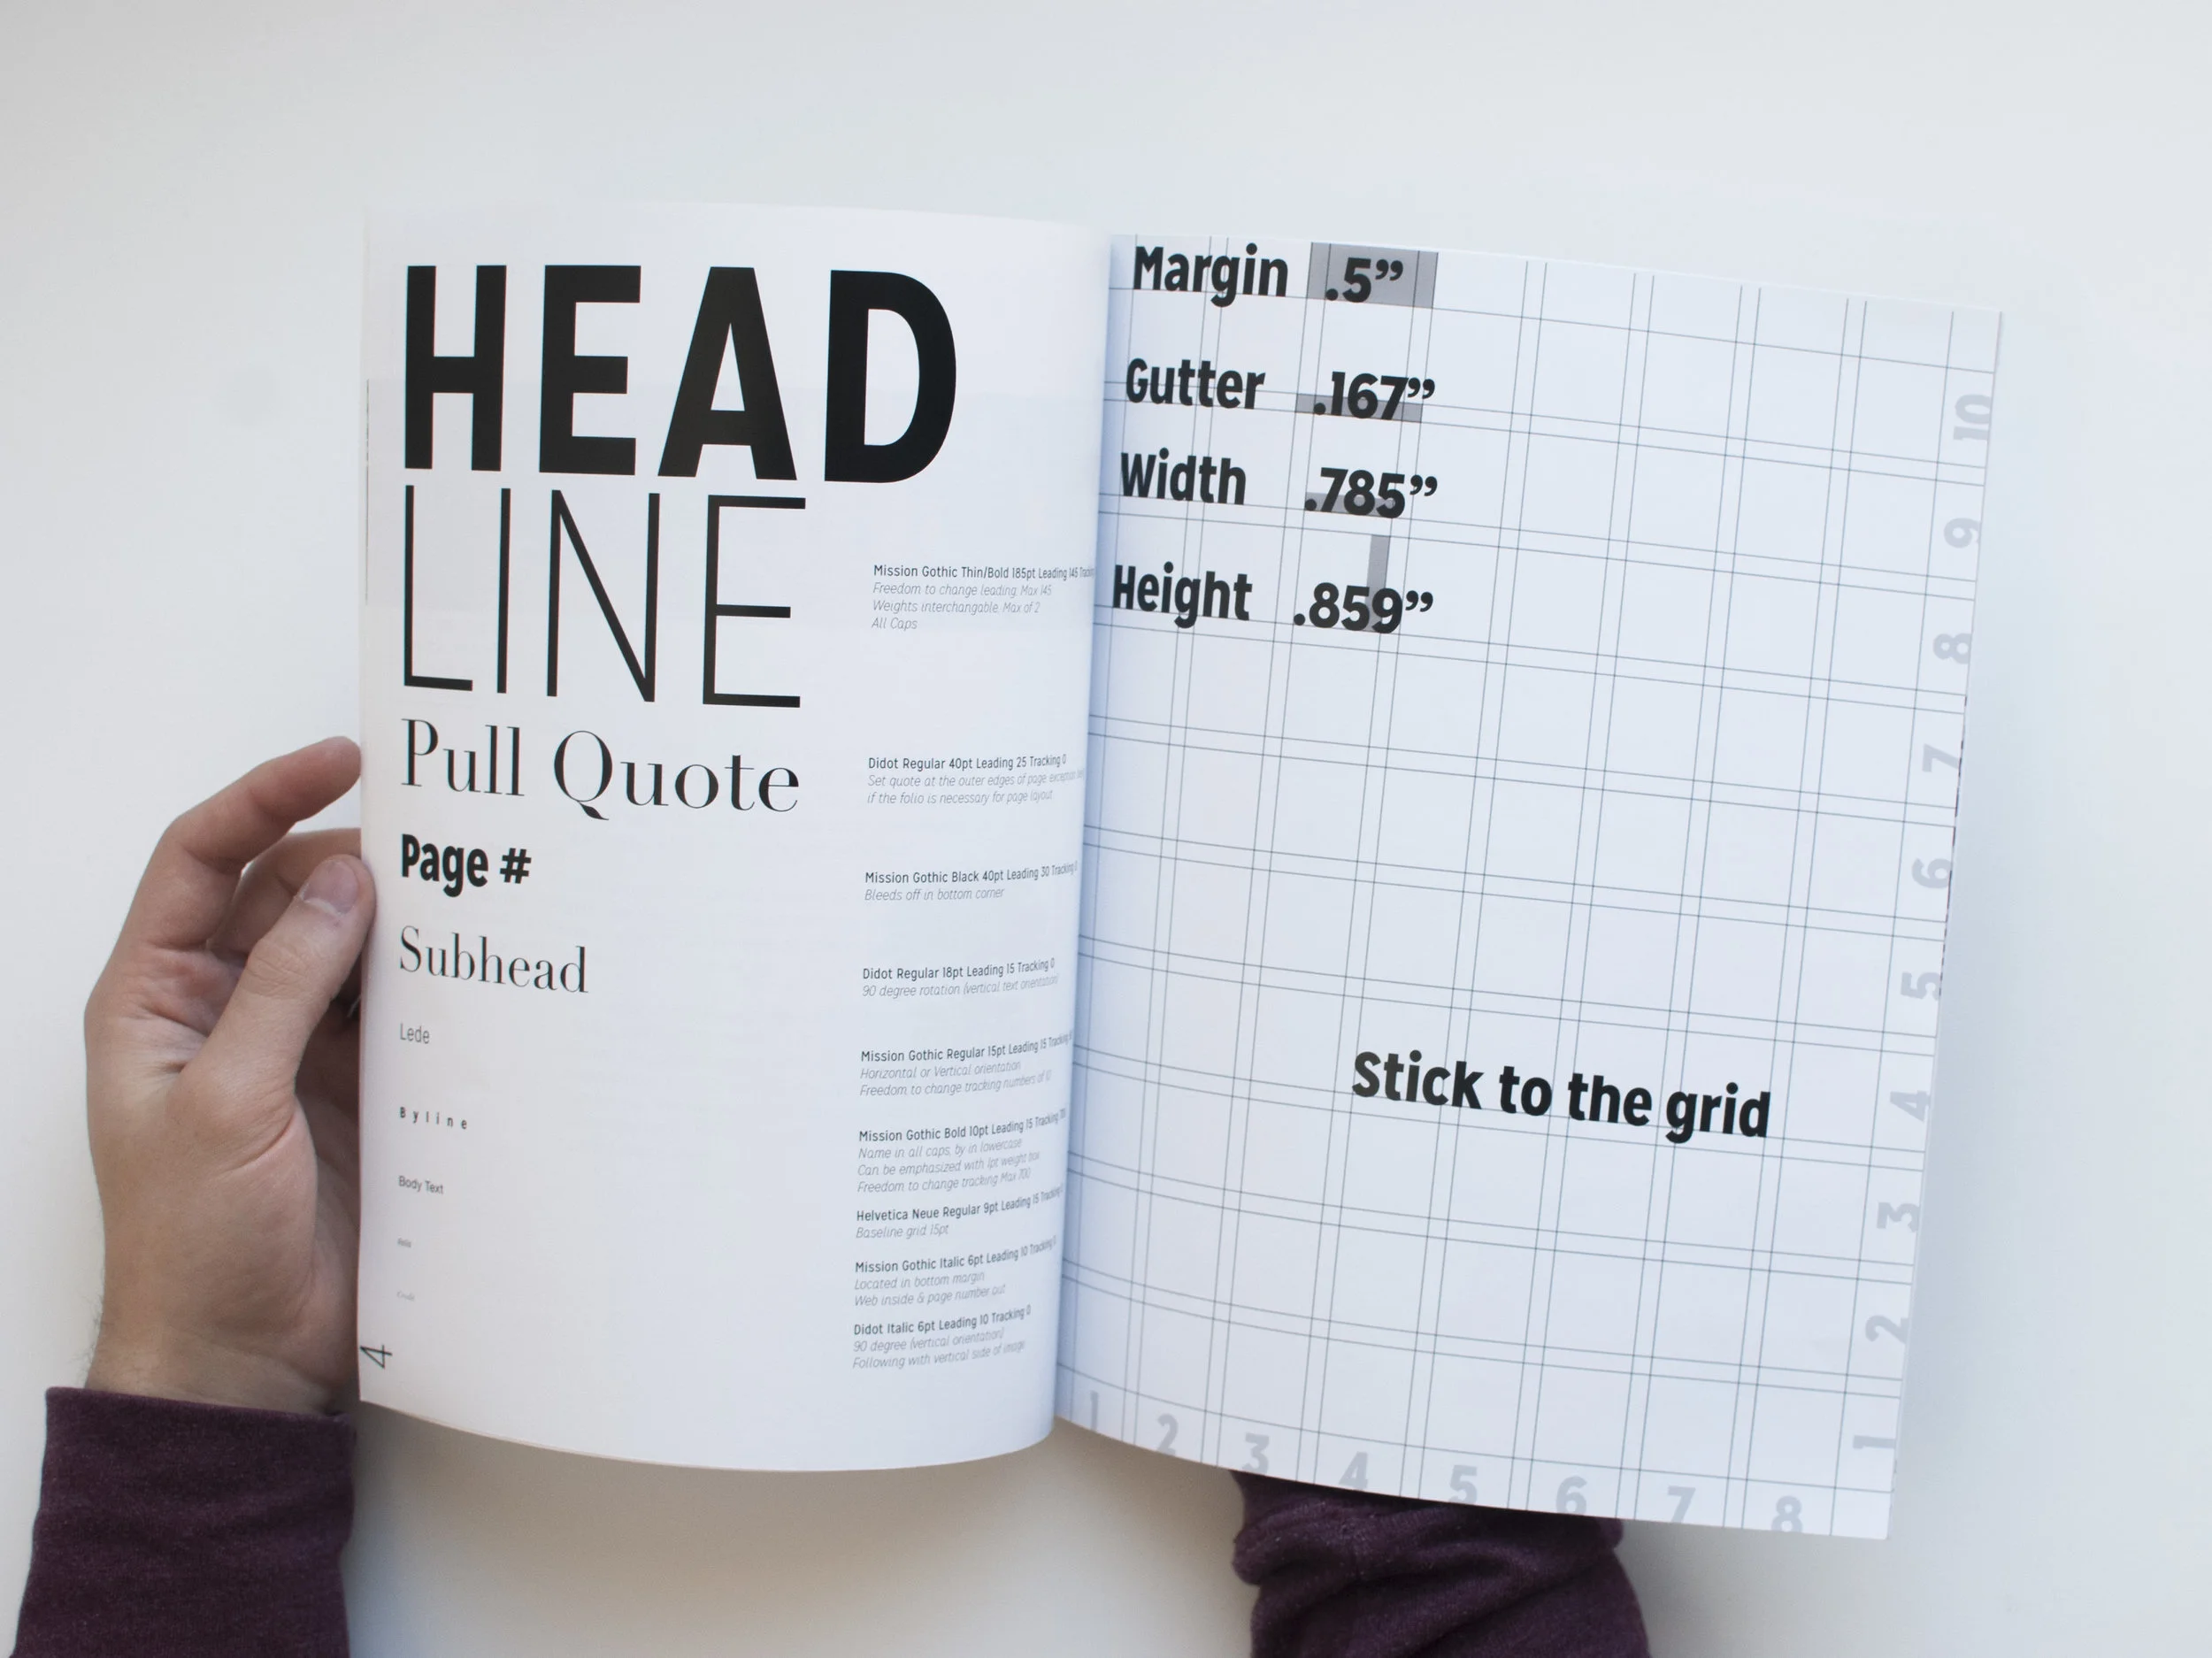 HEAD
LINE
Pull Quote
Page #
Subhead
Lede
Byline
Body Text
Folio
Credit
4
Mission Gothic Thin/Bold 185pt Leading 145
Freedom to change leading: Max 145
Weights interchangable. Max of 2
All Caps
Didot Regular 40pt Leading 25 Tracking 0
Set quote at the outer edges of page, exception
if the folio is necessary for page layout
Mission Gothic Black 40pt Leading 30 Tracking 0
Bleeds off in bottom corner
Didot Regular 18pt Leading 15 Tracking 0
90 degree rotation (vertical text orientation)
Mission Gothic Regular 15pt Leading 15
Horizontal or Vertical orientation
Freedom to change tracking numbers of 10
Mission Gothic Bold 10pt Leading 15 Tracking 700
Name in all caps, by in lowercase
Can be emphasized with 1pt weight box
Freedom to change tracking Max 700
Helvetica Neue Regular 9pt Leading 15 Tracking
Baseline grid 15pt
Mission Gothic Italic 6pt Leading 10 Tracking 0
Located in bottom margin
Web inside & page number out
Didot Italic 6pt Leading 10 Tracking 0
90 degree (vertical orientation)
Following with vertical side of image
Margin .5”
Gutter .167”
Width .785”
Height .859”
Stick to the grid
10
9
8
7
6
5
4
3
2
1
1 2 3 4 5 6 7 8